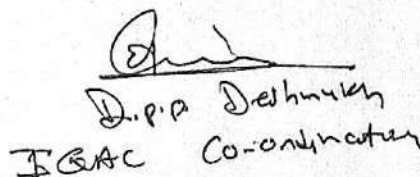 D.P.P Deshmukh
IQAC Co-ordinator